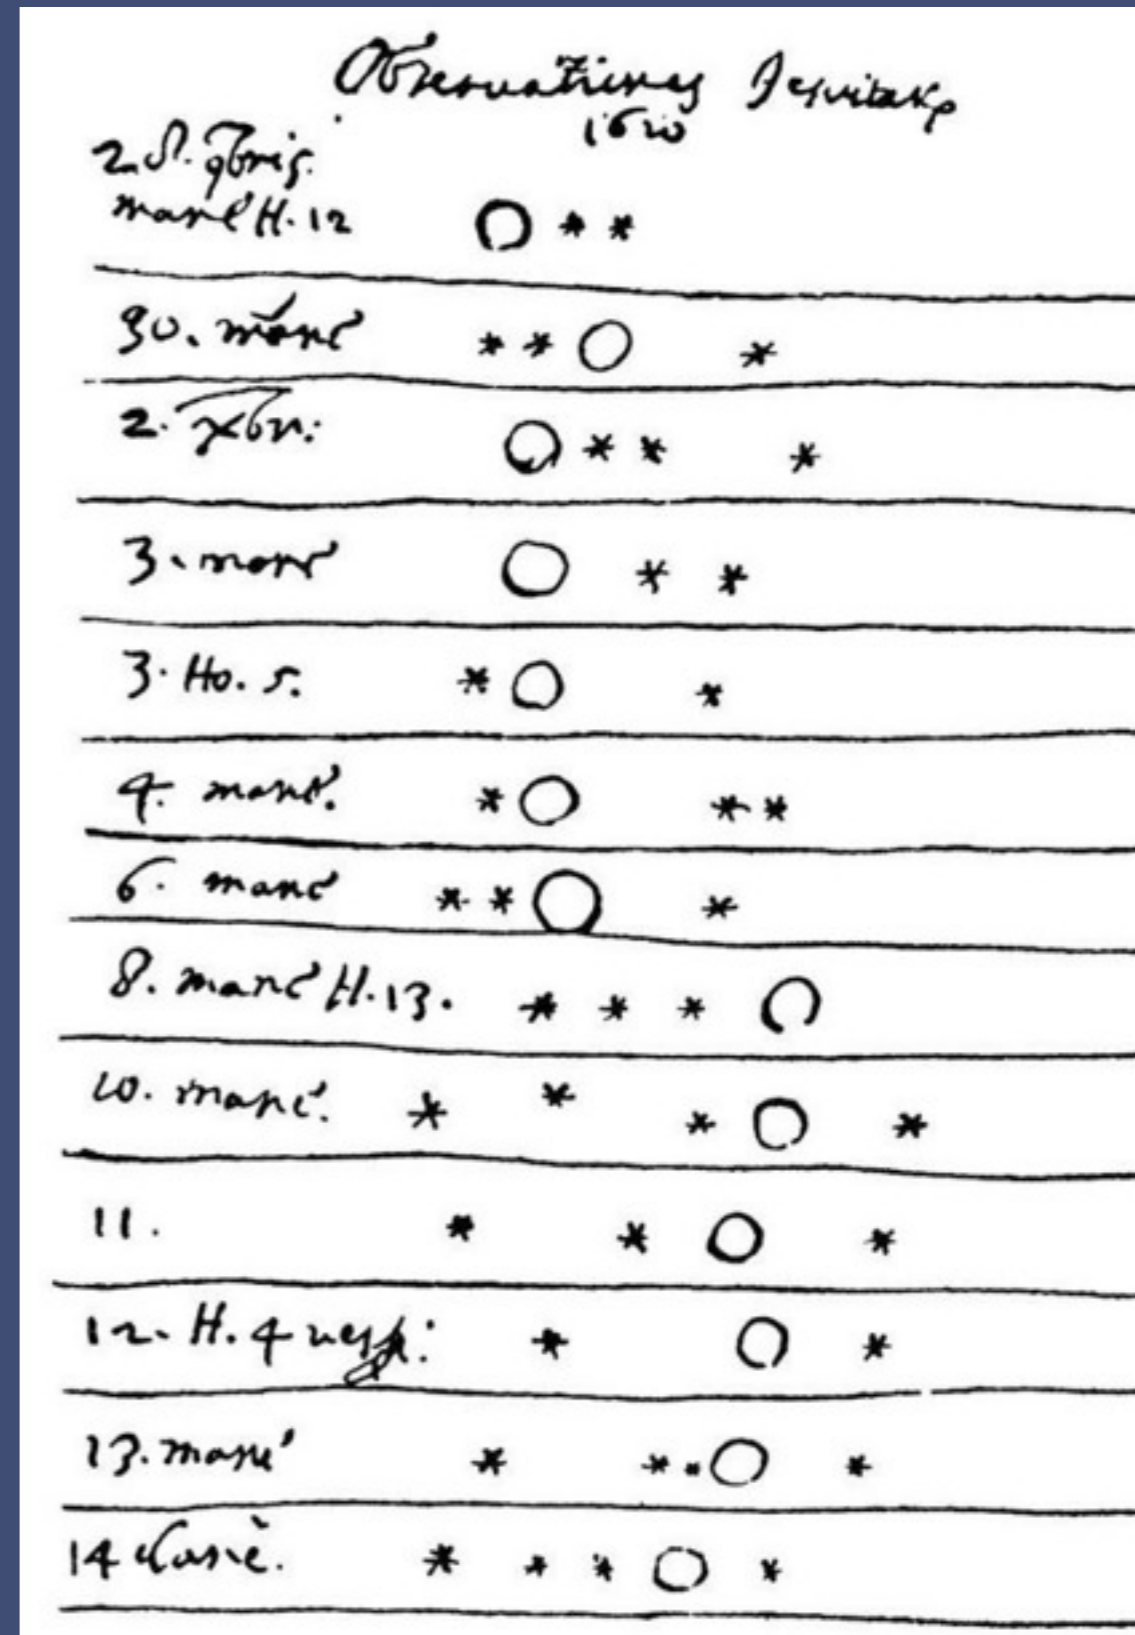 Observationes Jesuitarp
1610
2. S. 9bris.
mane H. 12
30. mane
2. Xbr:
3. mane
3. Ho. 5.
4. mane.
6. mane
8. mane H. 13.
10. mane.
11.
12. H. 4 vesp:
13. mane
14 mane.